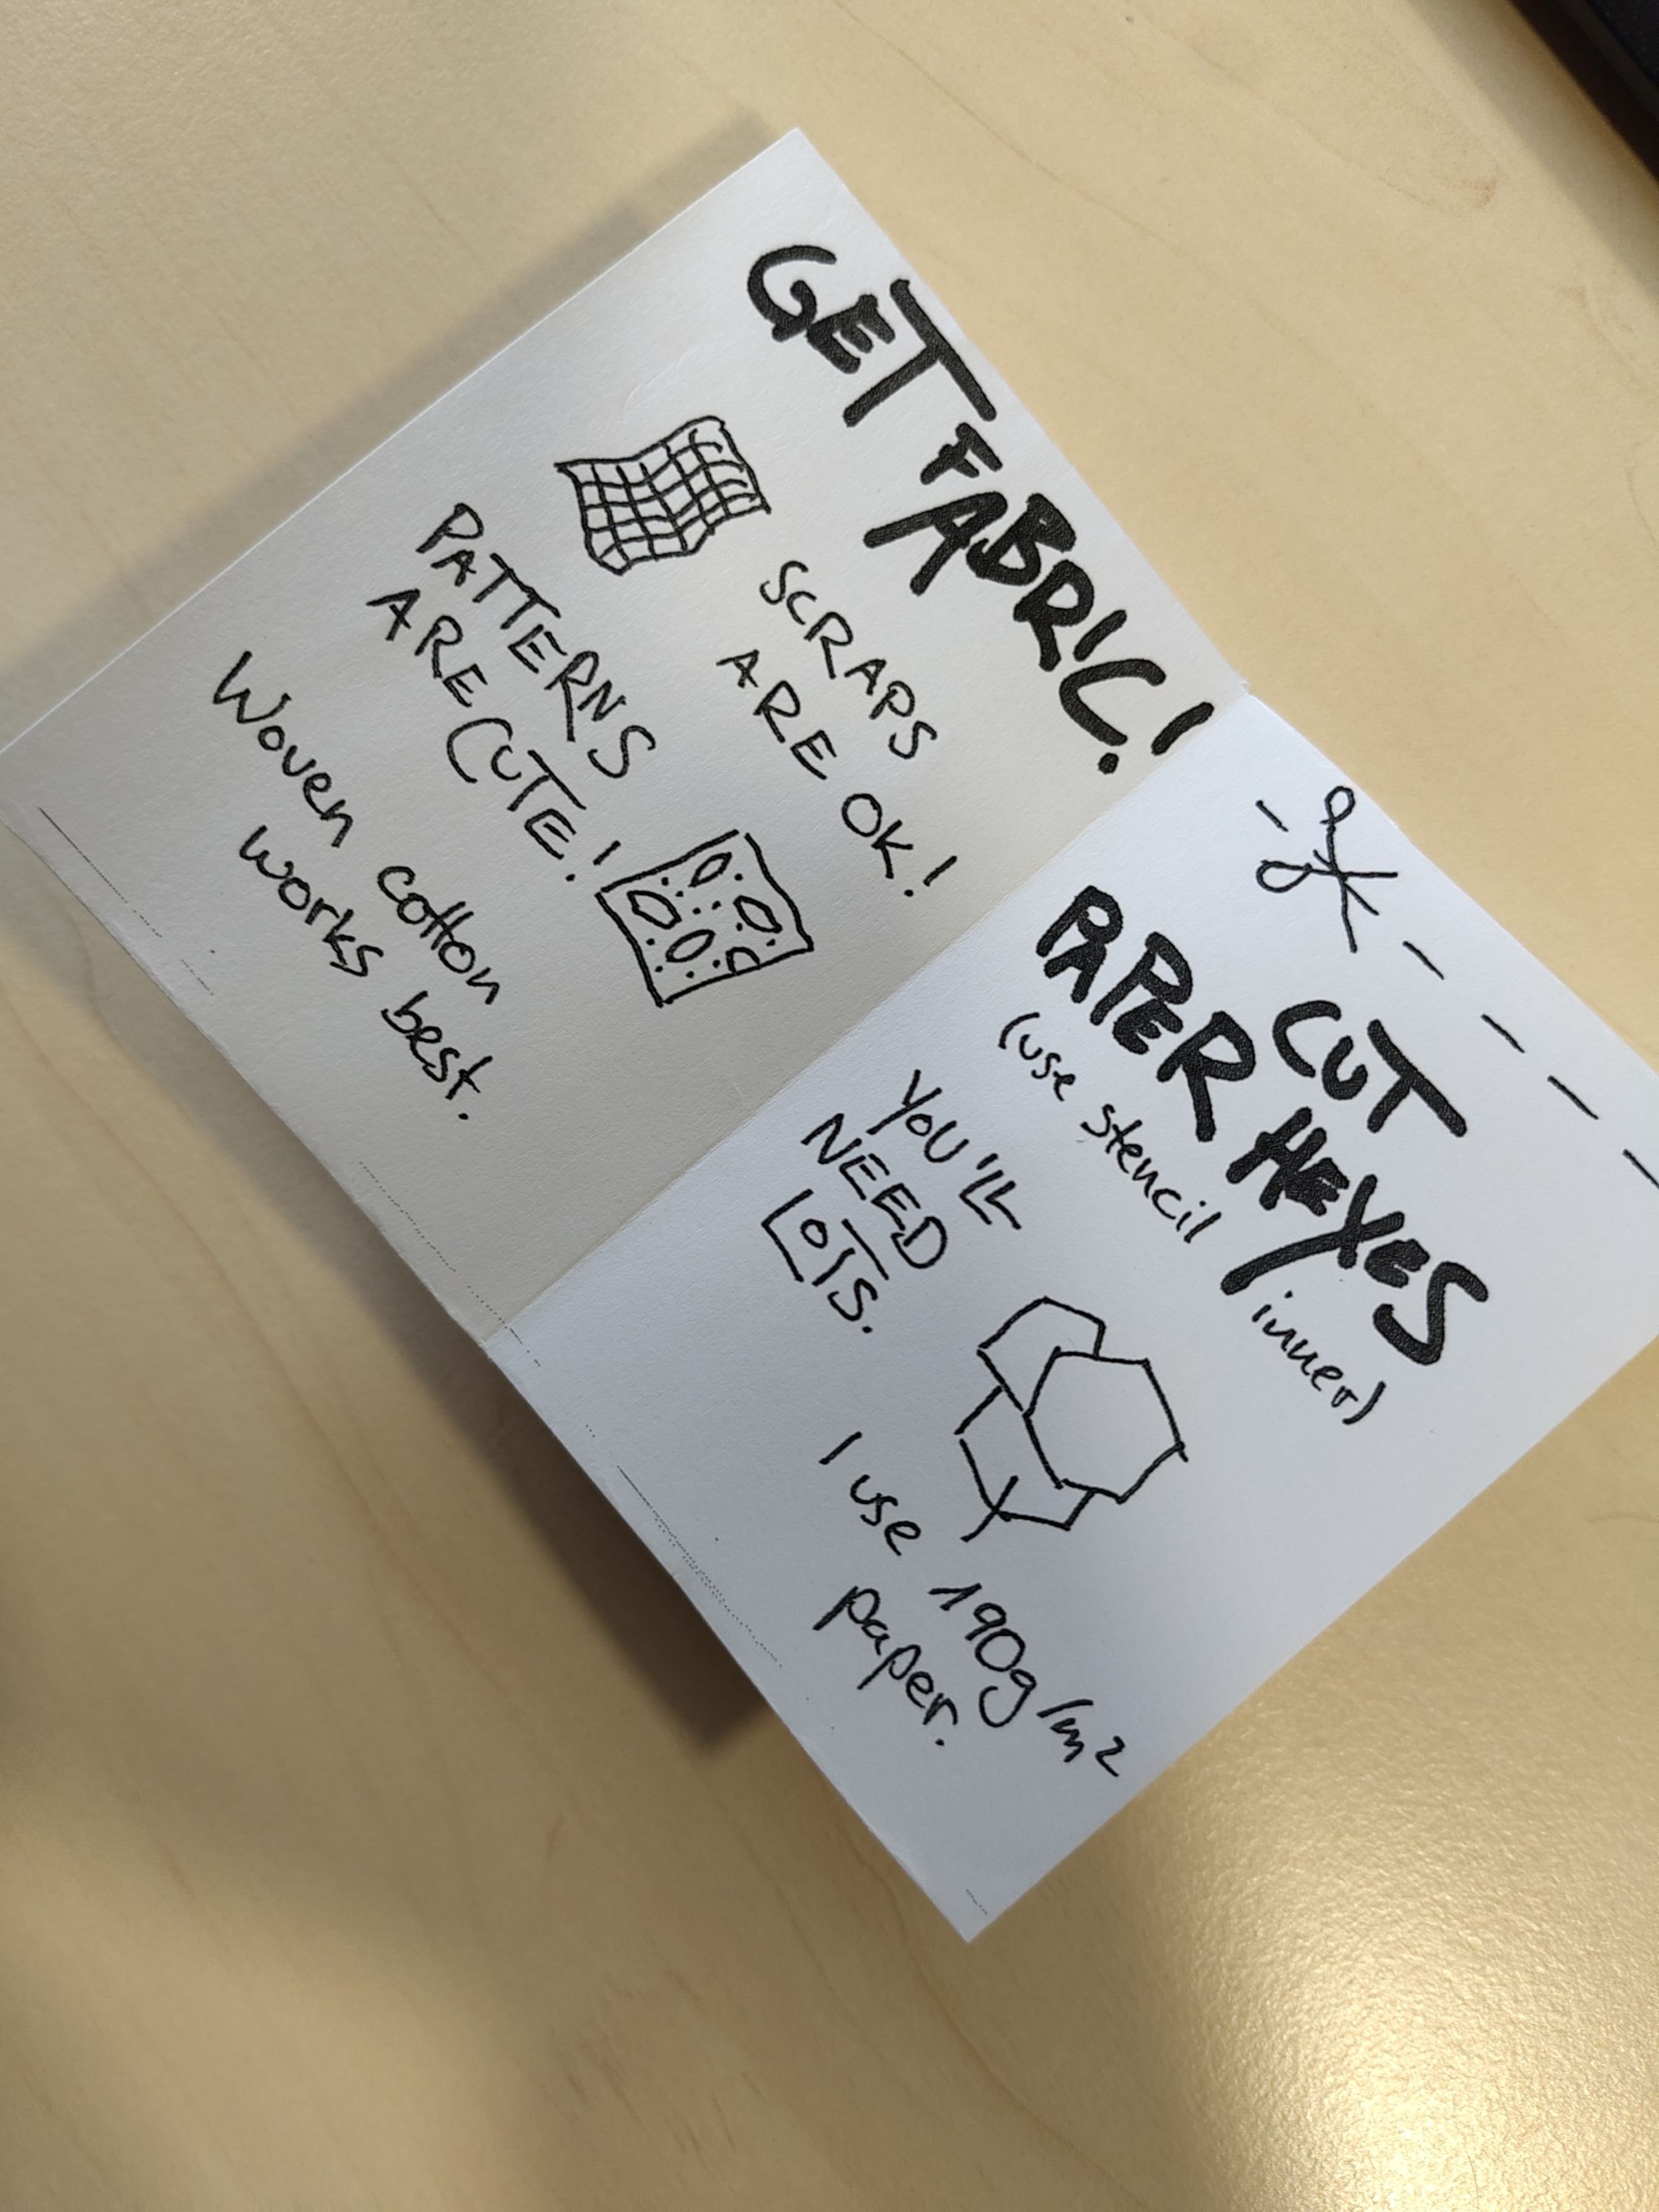 GET FABRIC!
SCRAPS
ARE OK!
PATTERNS
ARE CUTE!
Woven cotton
works best.
CUT
PAPER HEXES
(use stencil inner)
YOU'LL
NEED
LOTS.
I use 190g/m2
paper.